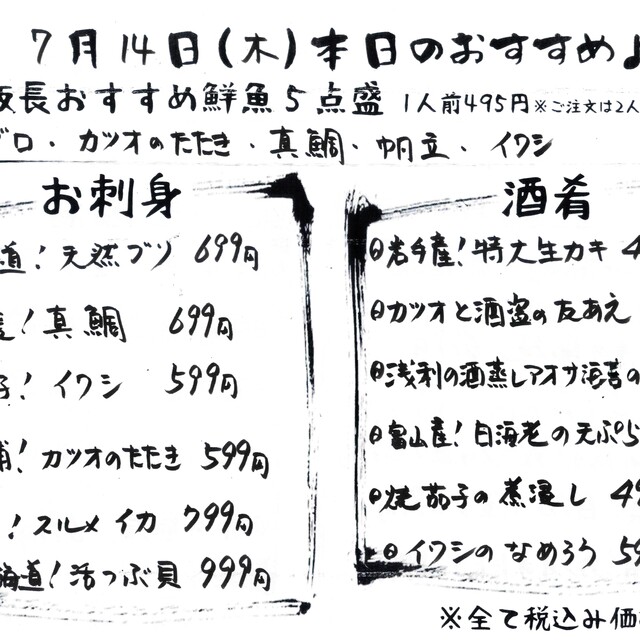 7月14日(木)本日のおすすめ♪
板長おすすめ鮮魚5点盛 1人前495円 ※ご注文は2人
グロ・カツオのたたき・真鯛・帆立・イワシ
お刺身
道!天然ブリ 699円
!真鯛 699円
子!イワシ 599円
!カツオのたたき 599円
!スルメイカ 799円
海道!活つぶ貝 999円
酒肴
岩手産!特大生カキ 4
カツオと酒盗の友あえ
浅利の酒蒸しアオサ海苔の
富山産!白海老の天ぷら5
焼茄子の煮浸し 49
イワシのなめろう 59
※全て税込み価